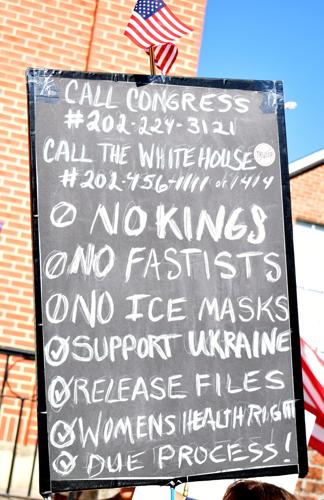 CALL CONGRESS
#202-224-3121
CALL THE WHITEHOUSE
#202-456-1111 or 1414
NO KINGS
NO FASTISTS
NO ICE MASKS
SUPPORT UKRAINE
RELEASE FILES
WOMENS HEALTH RIGHT
DUE PROCESS!